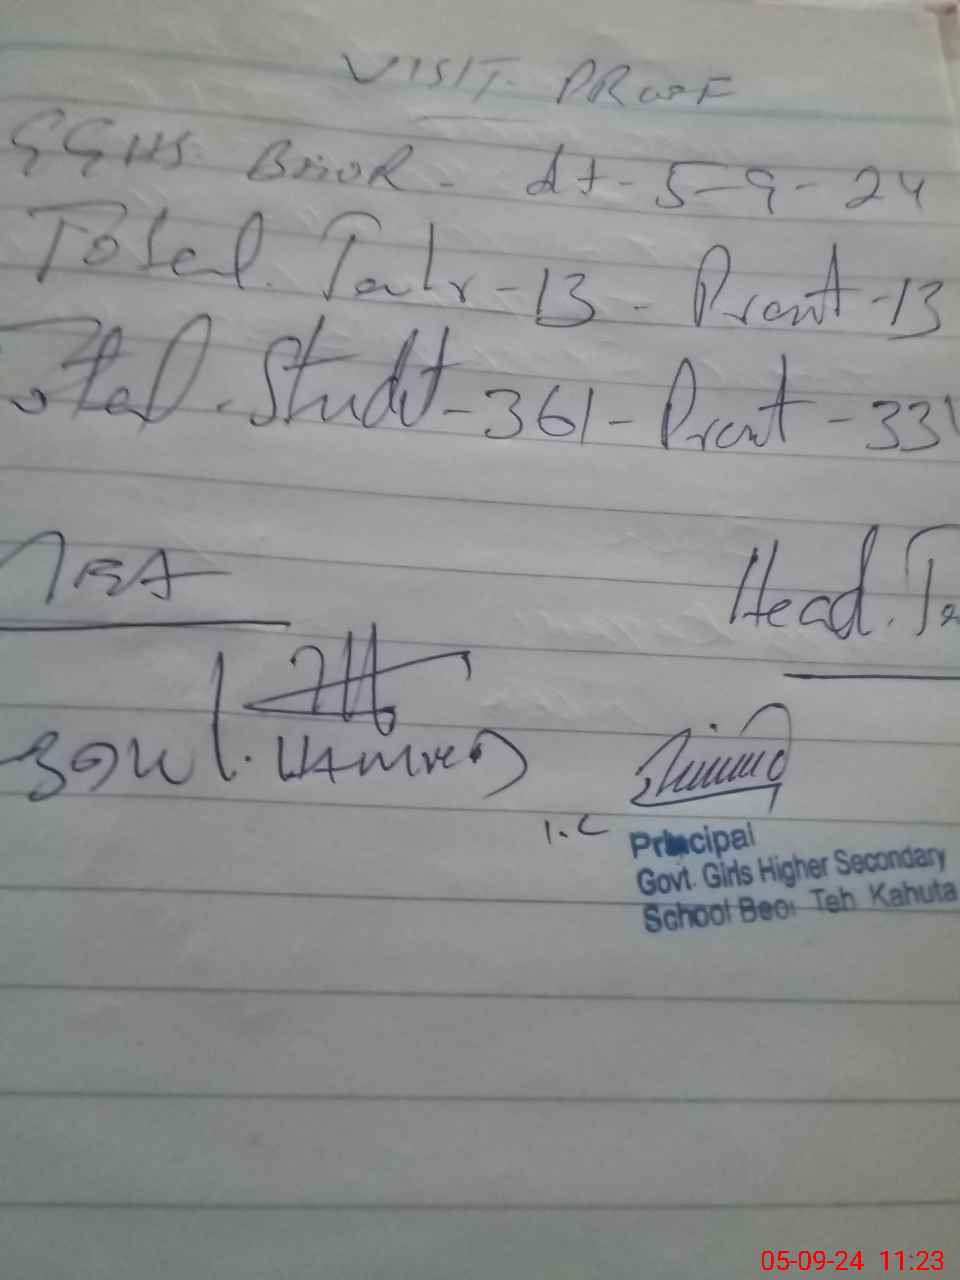 VISIT PROOF
GGHS. BEIOR - dt - 5-9-24
Total. Teachr - 13 - Presnt - 13
Total. Studt - 361 - Presnt - 33
Head.
1.C
Principal
Govt. Girls Higher Secondary
School Beor Teh Kahuta
05-09-24 11:23